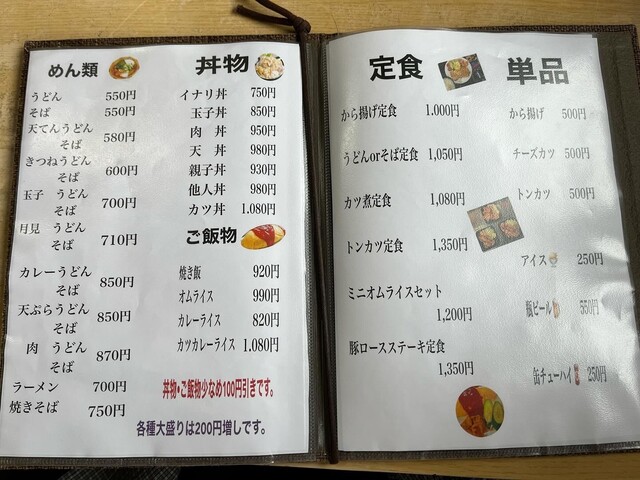 めん類
うどん 550円
そば 550円
天てんうどん
そば 580円
きつねうどん
そば 600円
玉子 うどん
そば 700円
月見 うどん
そば 710円
カレーうどん
そば 850円
天ぷらうどん
そば 850円
肉 うどん
そば 870円
ラーメン 700円
焼きそば 750円
丼物
イナリ丼 750円
玉子丼 850円
肉 丼 950円
天 丼 980円
親子丼 930円
他人丼 980円
カツ丼 1.080円
ご飯物
焼き飯 920円
オムライス 990円
カレーライス 820円
カツカレーライス 1.080円
丼物・ご飯物少なめ100円引きです。
各種大盛りは200円増しです。
定食
から揚げ定食 1.000円
うどんorそば定食 1,050円
カツ煮定食 1,080円
トンカツ定食 1,350円
ミニオムライスセット
1,200円
豚ロースステーキ定食
1,350円
単品
から揚げ 500円
チーズカツ 500円
トンカツ 500円
アイス 250円
瓶ビール 550円
缶チューハイ 250円